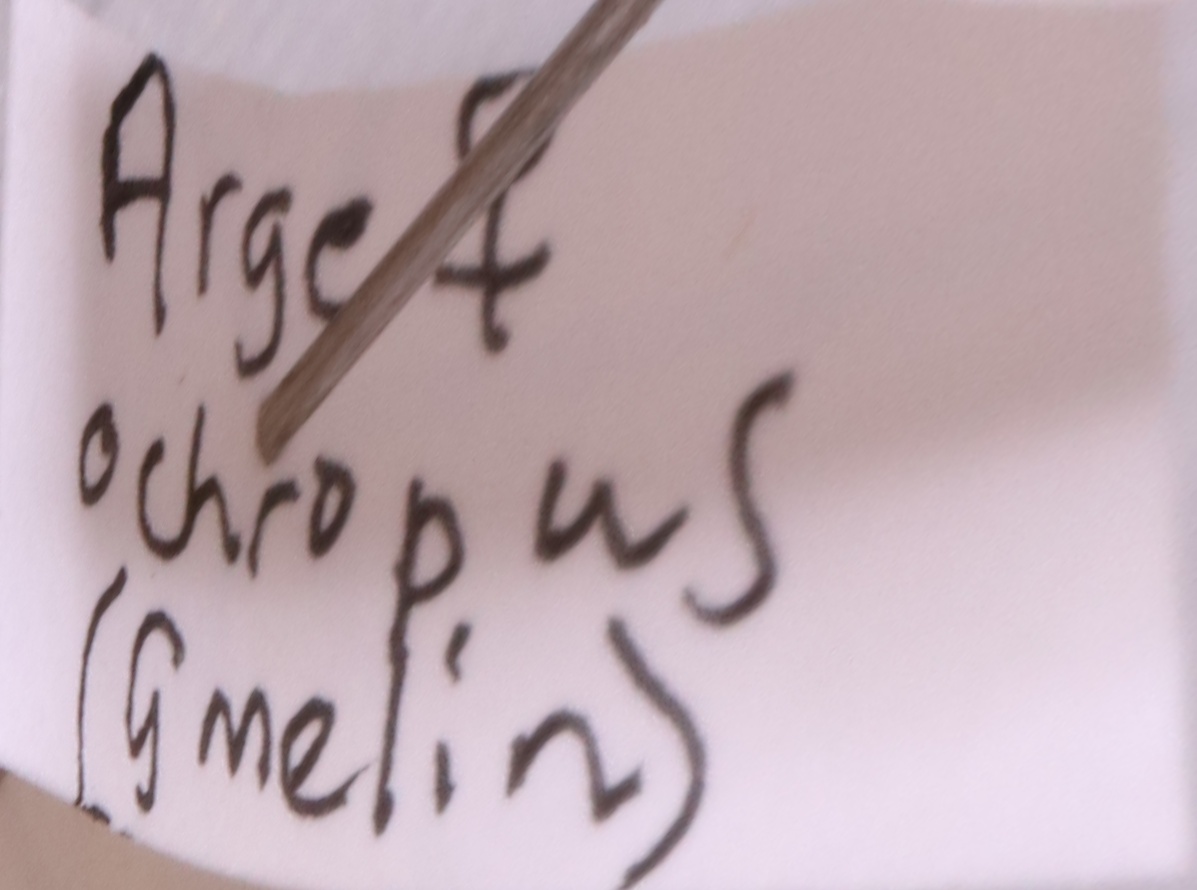 Arge ♀
ochropus
(Gmelin)